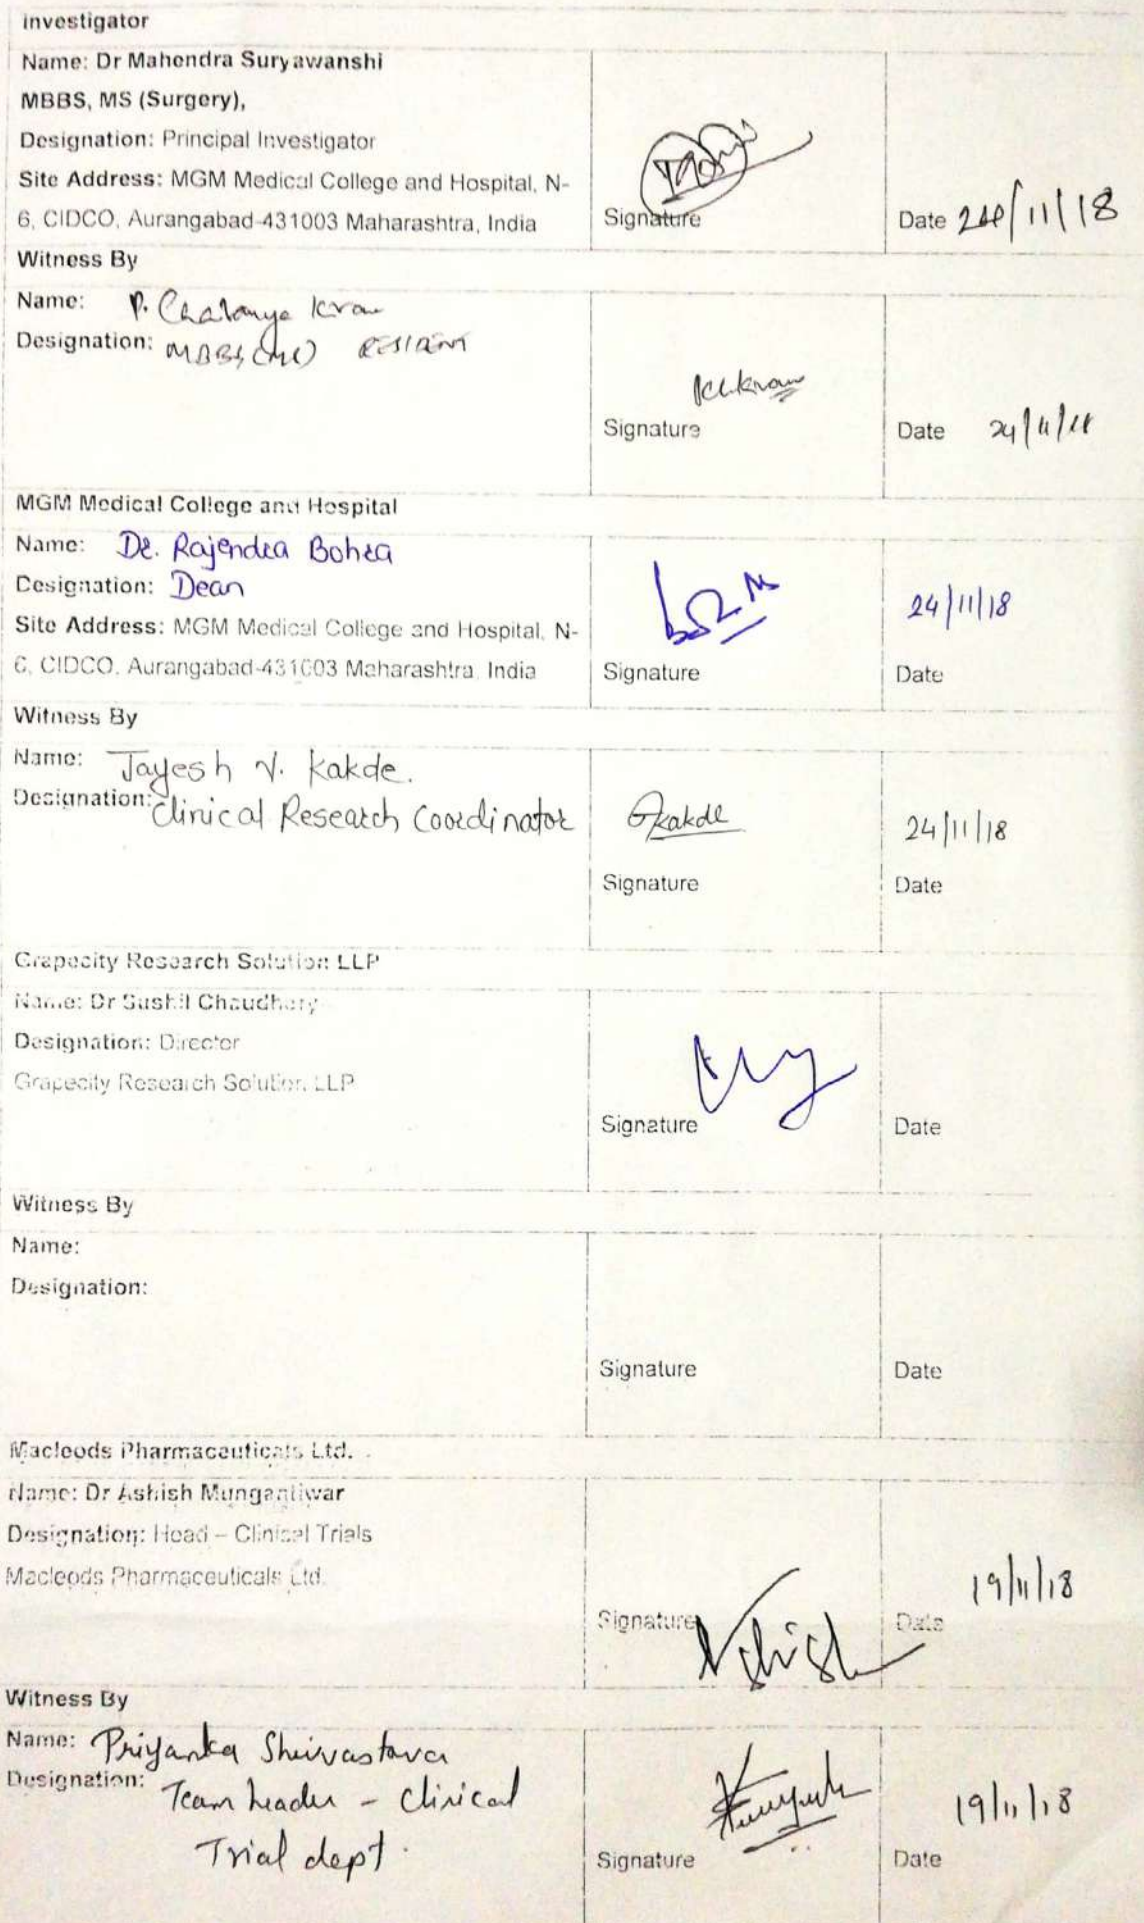 Investigator
Name: Dr Mahendra Suryawanshi
MBBS, MS (Surgery),
Designation: Principal Investigator
Site Address: MGM Medical College and Hospital, N-
6, CIDCO, Aurangabad-431003 Maharashtra, India
Signature
Date 24/11/18
Witness By
Name: P. Chaitanya Kiran
Designation: MBBS RESIDENT
Signature
Date 24/11/18
MGM Medical College and Hospital
Name: Dr. Rajendra Bohra
Designation: Dean
Site Address: MGM Medical College and Hospital, N-
6, CIDCO, Aurangabad-431003 Maharashtra, India
Signature
24/11/18
Date
Witness By
Name: Jayesh V. Kakde.
Designation: Clinical Research Coordinator
Kakde
Signature
24/11/18
Date
Grapecity Research Solution LLP
Name: Dr Sushil Chaudhary
Designation: Director
Grapecity Research Solution LLP
Signature
Date
Witness By
Name:
Designation:
Signature
Date
Macleods Pharmaceuticals Ltd.
Name: Dr Ashish Mungantiwar
Designation: Head – Clinical Trials
Macleods Pharmaceuticals Ltd.
Signature
Ashish
19/11/18
Date
Witness By
Name: Priyanka Shrivastava
Designation: Team Leader - Clinical
Trial dept.
Signature
19/11/18
Date